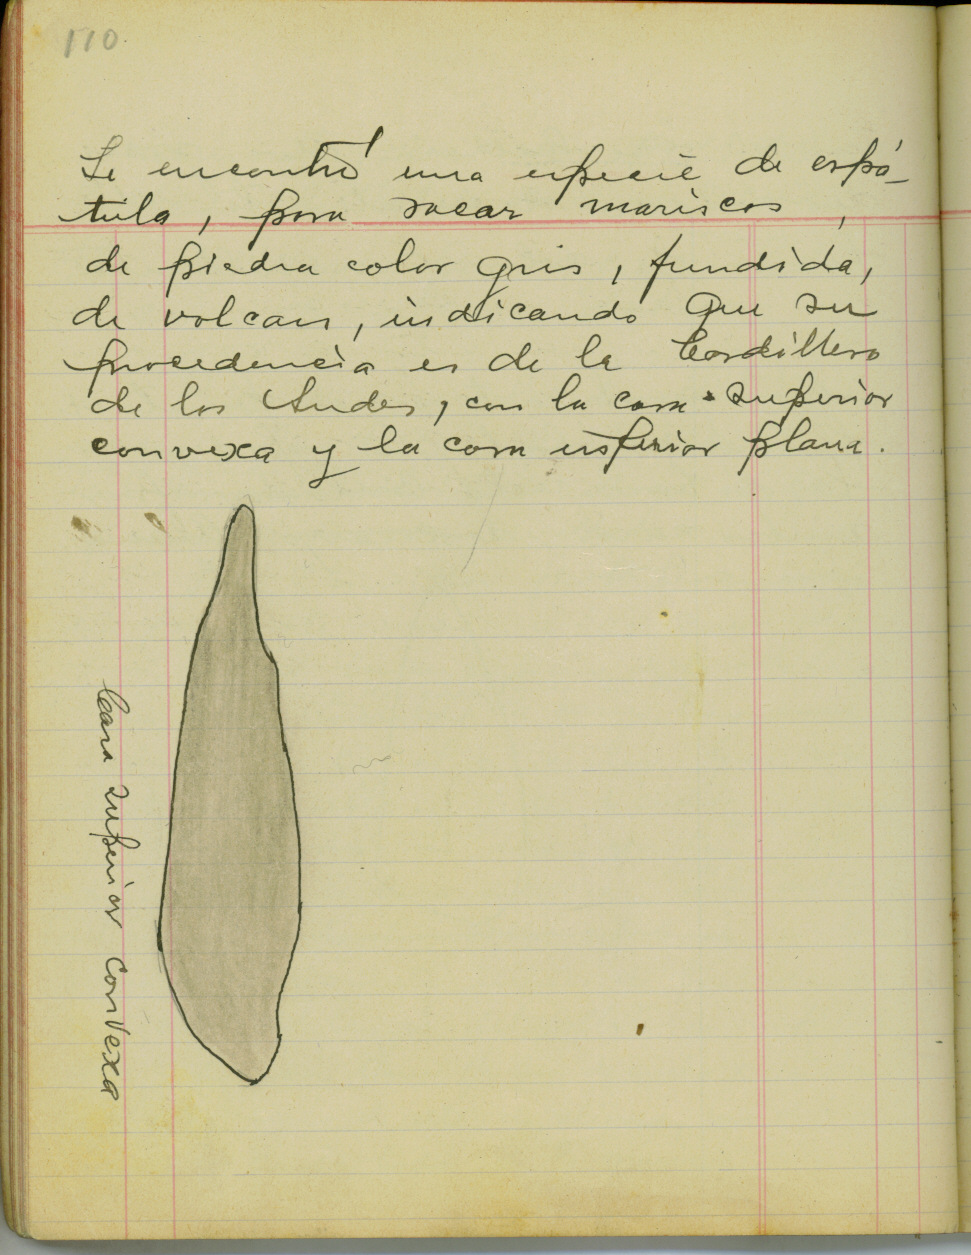 110
Se encontró una especie de espá-
tula, para sacar mariscos,
de piedra color gris, fundida,
de volcan, indicando que su
procedencia es de la Cordillera
de los Andes, con la cara superior
convexa y la cara inferior plana.
Cara superior convexa